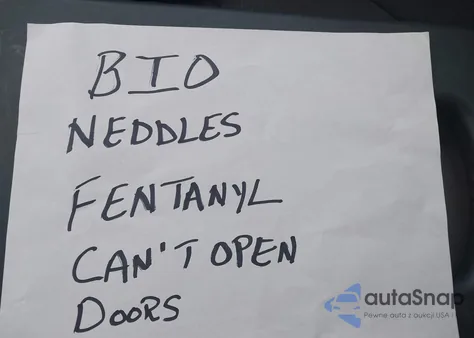 BIO
NEDDLES
FENTANYL
CAN'T OPEN
DOORS
autaSnap
Pewne auta z aukcji USA i